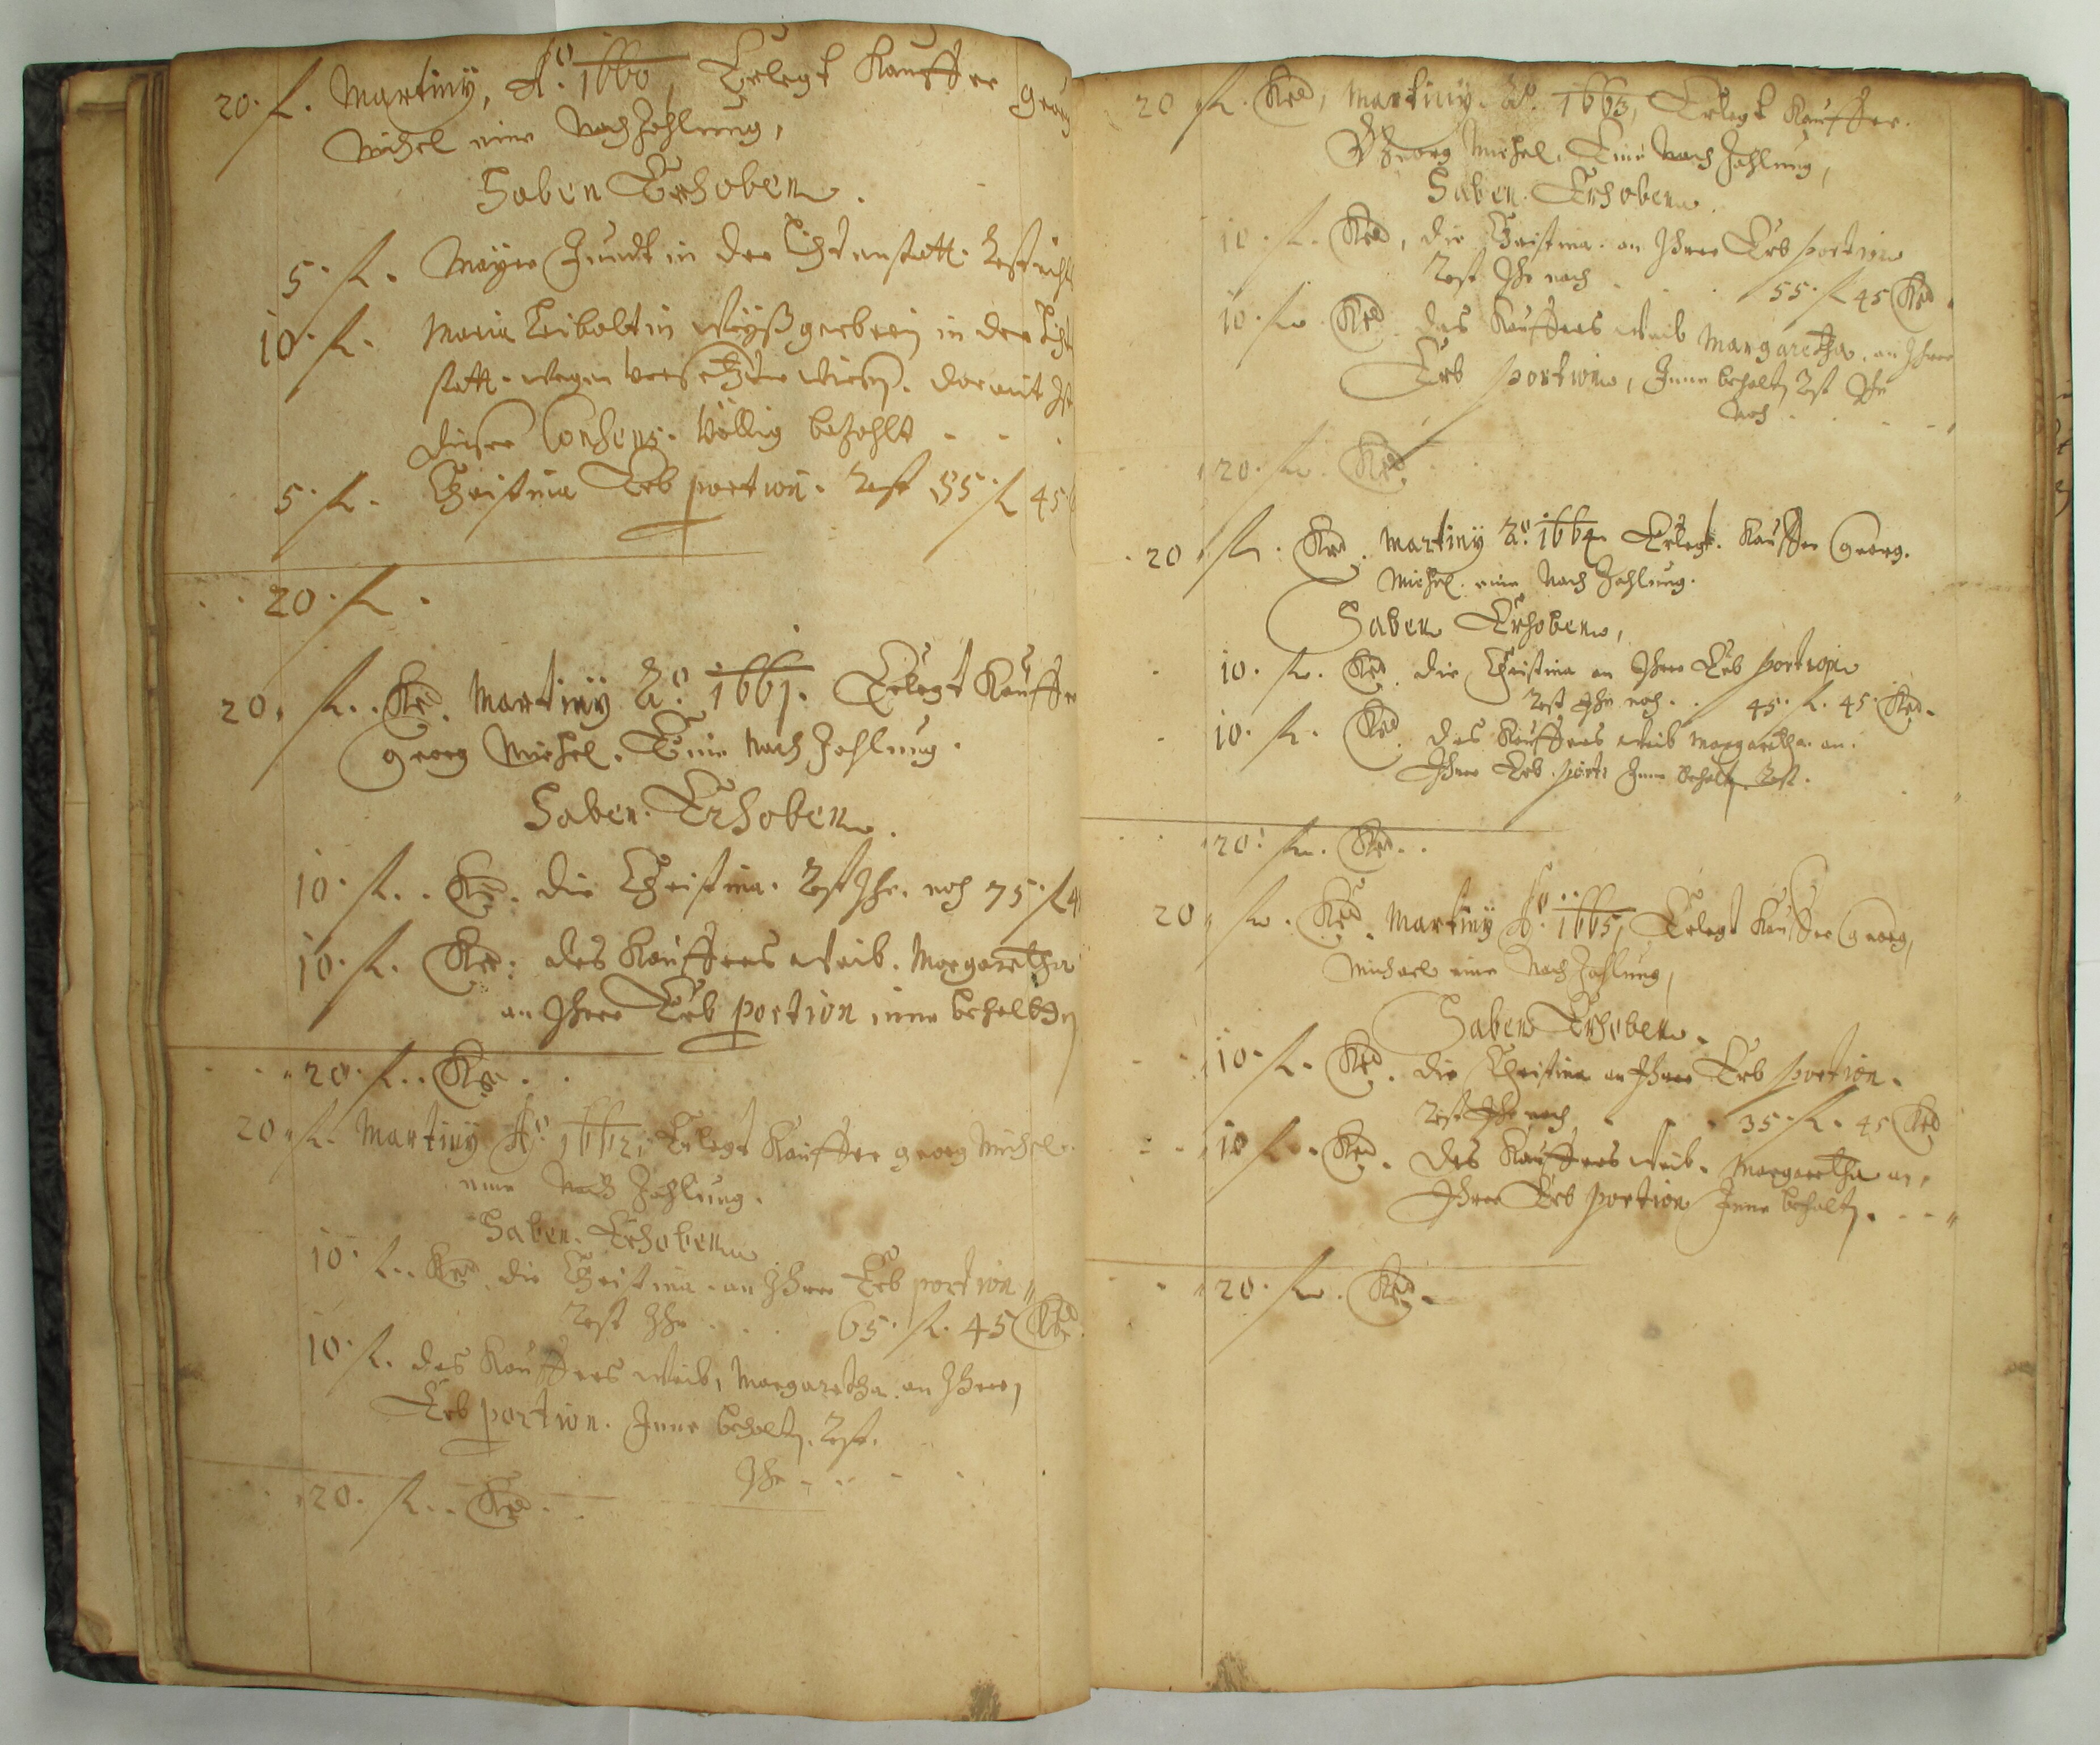 20. fl. Martiny, Aō. 1660, Erlegt Kauffer Georg
Michel eine Nachzahlung,
Haben Erhoben.
5. fl. Mayer in der Rest
10. fl. Maria in der
statt. wegen damit
dieser völlig bezahlt - -
5. fl. Christina Erb portion. Rest 85. fl 45
20. fl.
20, fl. Kr. Martiny Aō. 1661. Erlegt Kauffer
Georg Michel. Eine Nach Zahlung.
Haben. Erhoben.
10. fl. Kr. die Christina. Rest Ihr. noch 75. fl 4
10. fl. Kr. des Kauffers Weib. Margaretha
an Ihrer Erb portion inne behalten
20. fl. Kr.
20, fl. Martiny Aō. 1662, Erlegt Kauffer Georg Michel.
eine Nach Zahlung.
Haben. Erhoben
10. fl. Kr. die Christina. an Ihrer Erb portion,,
Rest Ihr . . . 65. fl. 45 Kr.
10. fl. des Kauffers Weib, Margaretha. an Ihrer,
Erb portion. Inne behalten. Rest.
Ihr - - -
20. fl. Kr.
20, fl. Kr, Martiny. Aō. 1663, Erlegt Kauffer.
Georg Michel. Eine Nach Zahlung,
Haben. Erhoben.
10. fl. Kr, die Christina. an Ihrer Erb portion
Rest Ihr noch . . . 55. fl 45 Kr.
10. fl. Kr. des Kauffers Weib Margaretha. an Ihrer
Erb portion, Inne behalten, Rest Ihr
noch . . . -
20. fl. Kr.
20, fl. Kr. Martiny Aō. 1664. Erlegt. Kauffer Georg.
Michel. eine Nach Zahlung.
Haben Erhoben,
10. fl. Kr. die Christina an Ihrer Erb portion
Rest Ihr noch . . 45. fl. 45. Kr.
10. fl. Kr. des Kauffers Weib Margaretha. an.
Ihrer Erb port: Inne behalten. Rest.
20. fl. Kr.
20, fl. Kr. Martiny Aō. 1665, Erlegt Kauffer Georg,
Michael eine Nach Zahlung,
Haben Erhoben.
10. fl. Kr. die Christina an Ihrer Erb portion.
Rest Ihr noch, . . . 35. fl. 45 Kr
10 fl. Kr. des Kauffers Weib. Margaretha an,
Ihrer Erb portion Inne behalten. - -
20. fl. Kr.